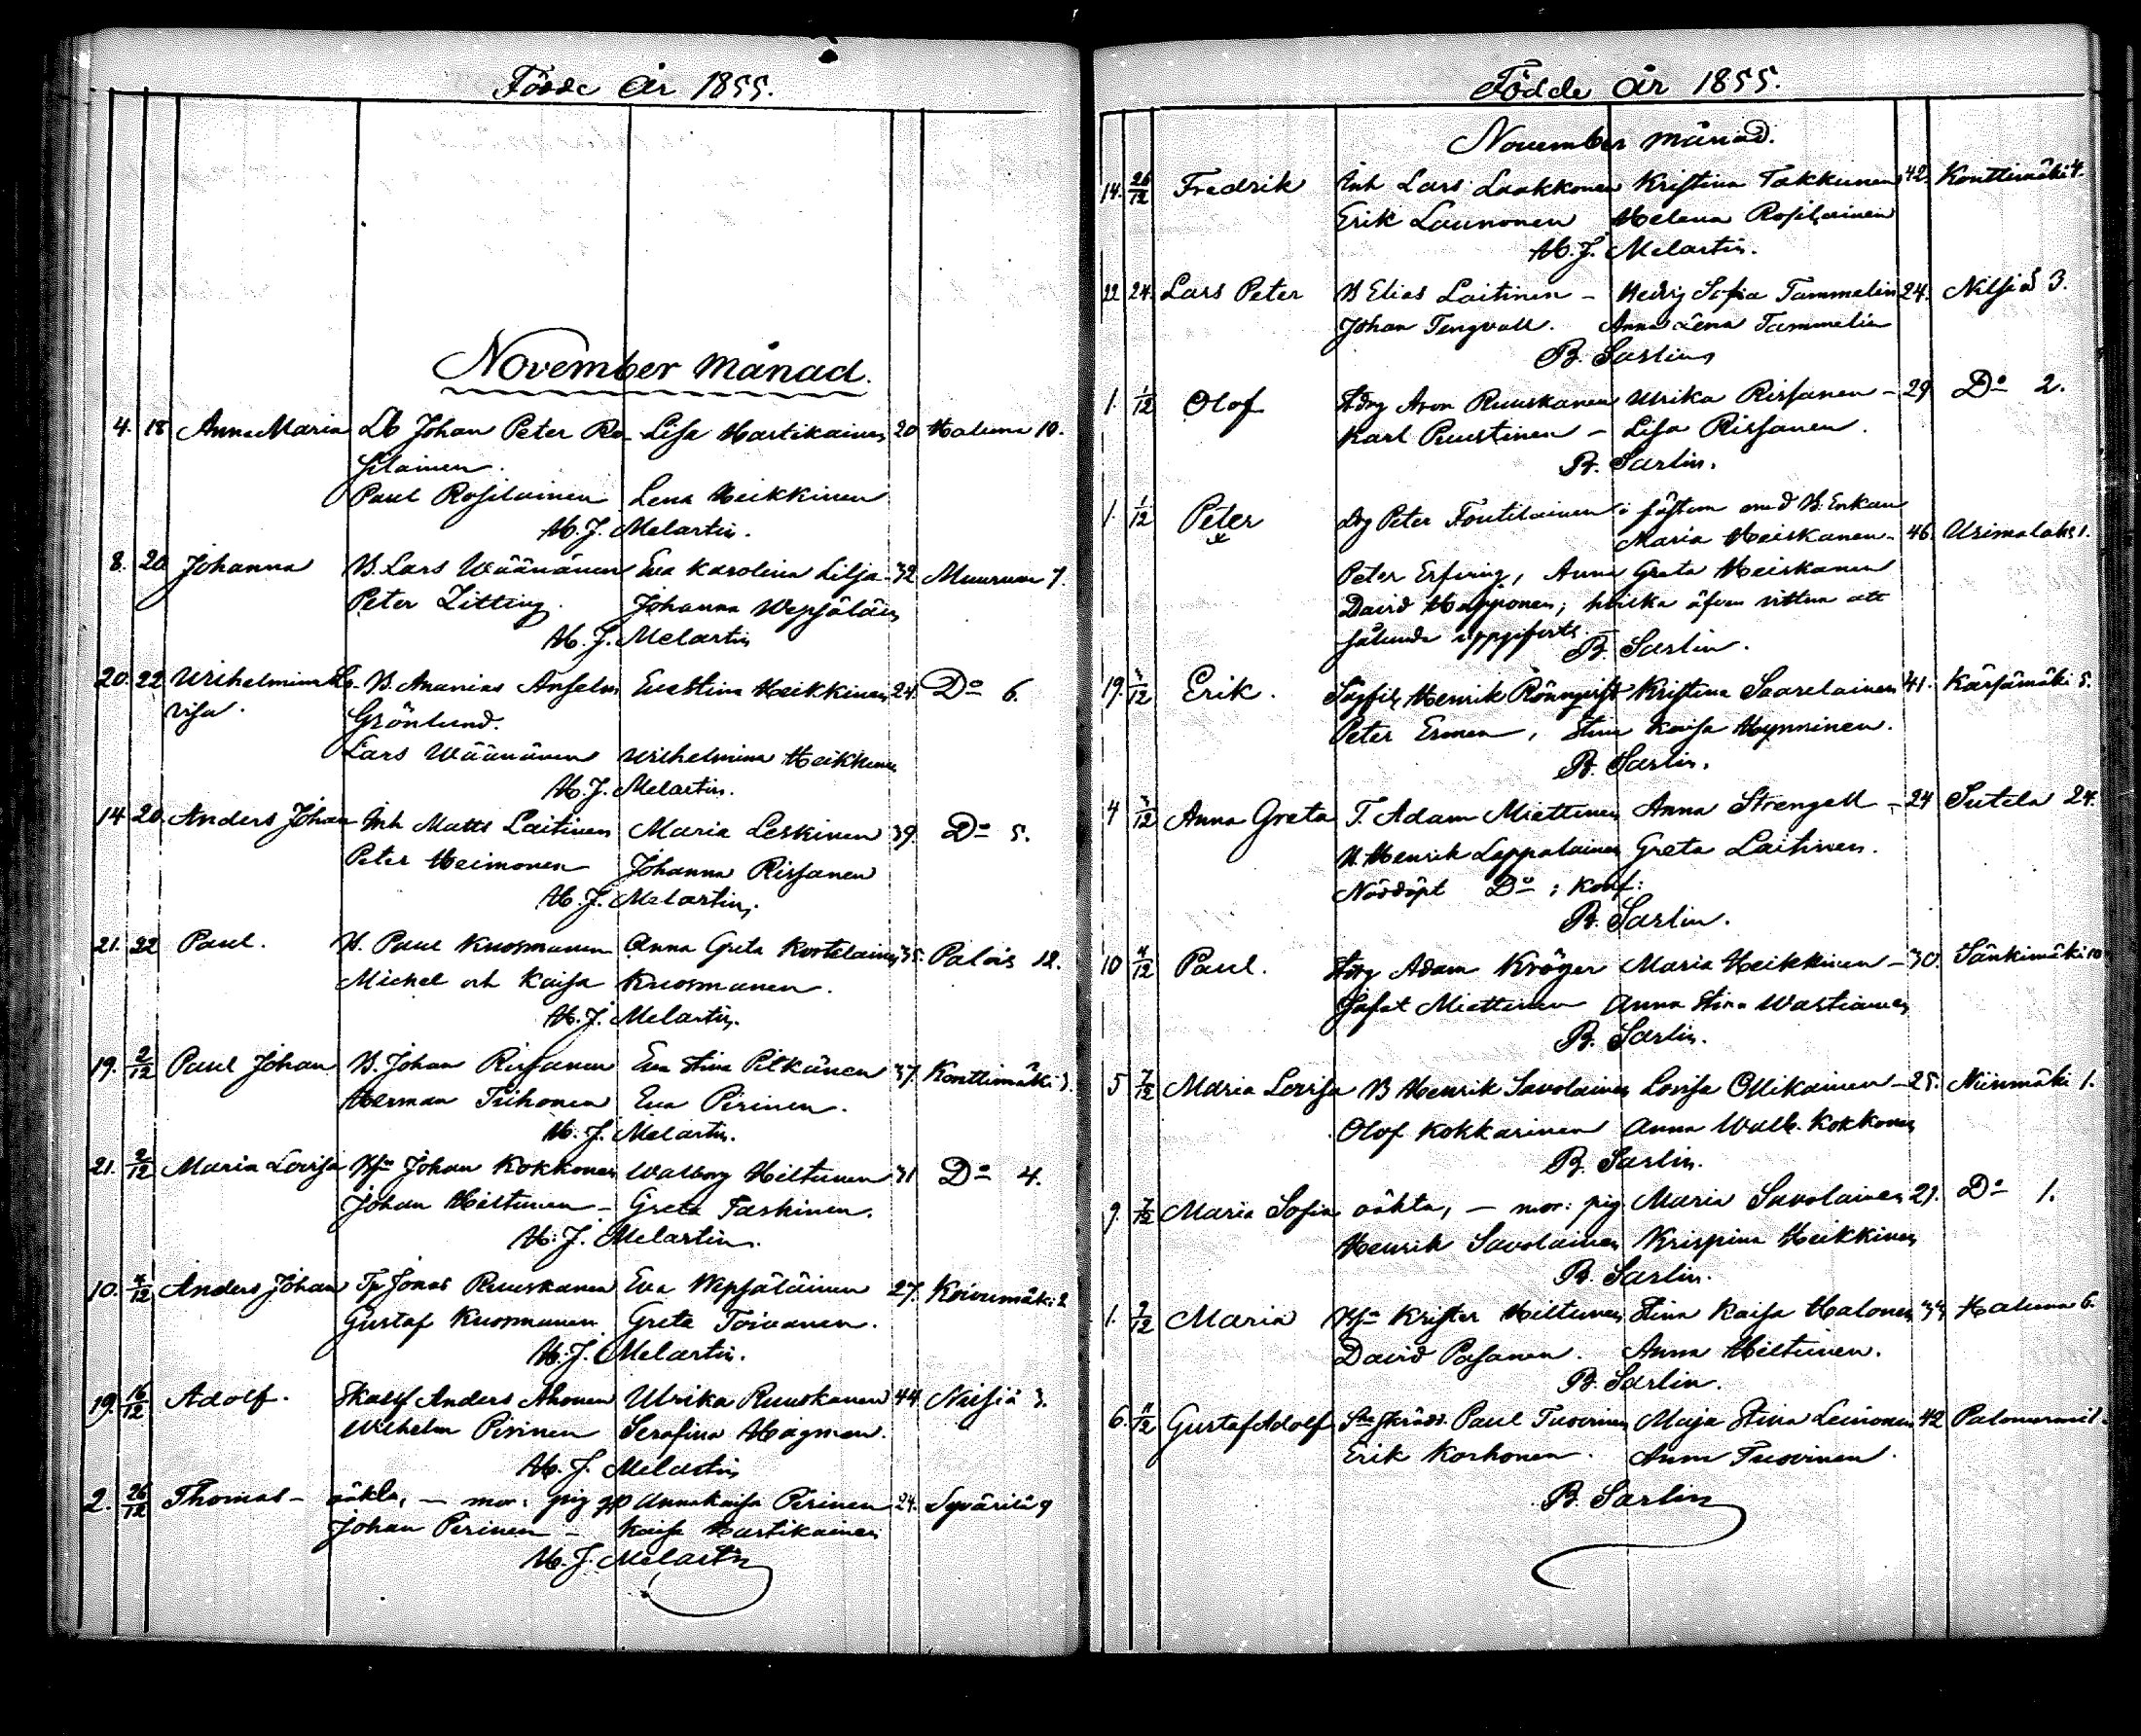 Födde År 1855.
November månad.
4. 18 Anna Maria Lb Johan Peter Ro- Lisa Hartikainen 20 Haluna 10.
silainen.
Paul Rosilainen Lena Heikkinen
H. J. Melartin.
8. 20 Johanna B. Lars Wäänänen Eva Karolina Lilja 32 Muuruvesi 7.
Peter Zitting. Johanna Wepsäläin
H. J. Melartin
20. 22 Wilhelmina Lo- B. Ananias Anselm Eva Stina Heikkinen 24. Do 6.
visa. Grönlund.
Lars Wäänänen Wilhelmina Heikkinen
H. J. Melartin.
14 20. Anders Johan Inh Matts Laitinen Maria Leskinen 39. Do 5.
Peter Heimonen Johanna Rissanen
H. J. Melartin.
21. 22 Paul. B. Paul Knosmanen Anna Greta Kortelainen 35. Palois 12.
Michel och Kaisa Kuosmanen.
H. J. Melartin.
19. 2/12 Paul Johan B. Johan Rissanen Eva Stina Pitkänen 37. Konttimäki 3.
Herman Tiihonen Eva Pirinen.
H. J. Melartin.
21. 2/12 Maria Lovisa Johan Kokkonen Walborg Hiltunen 31 Do 4.
Johan Hiltunen - Greta Taskinen.
H. J. Melartin.
10. 4/12 Anders Johan Jonas Ruuskanen Eva Wepsäläinen 27. Koivumäki 2
Gustaf Kuosmanen Greta Toivanen.
H. J. Melartin.
19. 16/12 Adolf. Anders Ahonen Ulrika Ruuskanen 44 Nilsiä 3.
Wilhelm Pirinen Serafina Hagman.
H. J. Melartin
2. 26/12 Thomas - oäkta, - mor: pig Anna Kaisa Pirinen 24. Syvärila 9
Johan Pirinen - Kaisa Hartikainen
H. J. Melartin
Födde År 1855.
November månad.
14. 26/12 Fredrik Inh Lars Laakkonen Kristina Takkunen 42. Konttimäki 4.
Erik Launonen Helena Rosilainen
H. J. Melartin.
22 24. Lars Peter B Elias Laitinen - Hedvig Sofia Tammelin 24. Nilsiä 3.
Johan Tengvall. Anna Lena Tammelin
B. Sarlin
1. 1/12 Olof Aron Ruuskanen Ulrika Rissanen - 29 Do 2.
Karl Puustinen - Lisa Rissanen.
B. Sarlin.
1. 1/12 Peter Drg Peter Toutilainen i fästem. med B: Enkan
Maria Heiskanen - 46. Urimolaks 1.
Peter Erfving, Anna Greta Heiskanen
David Happonen; hvilka äfven vittna att
sålunda uppgifvits.
B. Sarlin.
19. 3/12 Erik. Henrik Rönnqvist Kristina Saarelainen 41. Kärsämäki 5.
Peter Ermen, Stina Kaisa Hynninen.
B. Sarlin.
4 3/12 Anna Greta T. Adam Miettinen Anna Strengell - 24 Sutela 24.
B. Henrik Lappalainen Greta Laitinen.
Nöddöpt Do; konf:
B. Sarlin.
10 4/12 Paul. Adam Kröger Maria Heikkinen - 30. Sänkimäki 10
Jafet Miettinen Anna Stina Wartiainen
B. Sarlin.
5 7/12 Maria Lovisa B Henrik Savolainen Lovisa Ollikainen - 25. Niinimäki 1.
Olof Kokkarinen Anna Walb. Kokkonen
B. Sarlin.
9. 7/12 Maria Sofia oäkta, - mor: pig. Maria Savolainen 21. Do 1.
Henrik Savolainen Krispina Heikkinen
B. Sarlin.
1. 7/12 Maria Krister Hiltunen Stina Kaisa Halonen 34 Haluna 6.
David Pasanen. Anna Hiltunen.
B. Sarlin.
6. 11/12 Gustaf Adolf Paul Tuovinen Maja Stina Leinonen 42 Palonurmi 1.
Erik Korhonen. Anna Tuovinen.
B. Sarlin